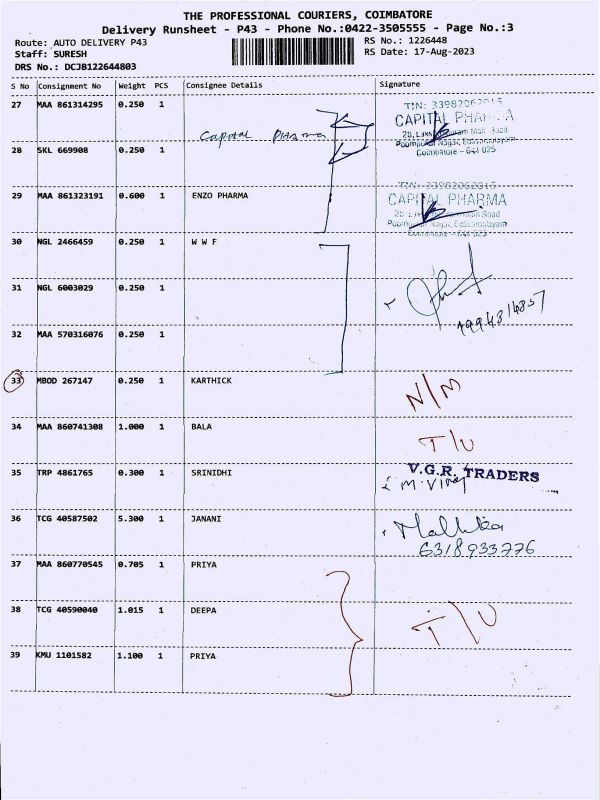 THE PROFESSIONAL COURIERS, COIMBATORE
Delivery Runsheet - P43 - Phone No.:0422-3505555 - Page No.:3
Route: AUTO DELIVERY P43
RS No.: 1226448
Staff: SURESH
RS Date: 17-Aug-2023
DRS No.: DCJB122644803
S No Consignment No Weight PCS Consignee Details Signature
27 MAA 861314295 0.250 1
TIN: 33982062015
CAPITAL PHARMA
Capital Pharma
Coimbatore - 641 025
28 SKL 669908 0.250 1
29 MAA 861323191 0.600 1 ENZO PHARMA
TIN: 33982062015
CAPITAL PHARMA
30 NGL 2466459 0.250 1 W W F
31 NGL 6003029 0.250 1
32 MAA 570316076 0.250 1
33 MBOD 267147 0.250 1 KARTHICK N/M
34 MAA 860741308 1.000 1 BALA T/U
35 TRP 4861765 0.300 1 SRINIDHI V.G.R. TRADERS
36 TCG 40587502 5.300 1 JANANI
6318933776
37 MAA 860770545 0.705 1 PRIYA
38 TCG 40590040 1.015 1 DEEPA T/U
39 KMU 1101582 1.100 1 PRIYA